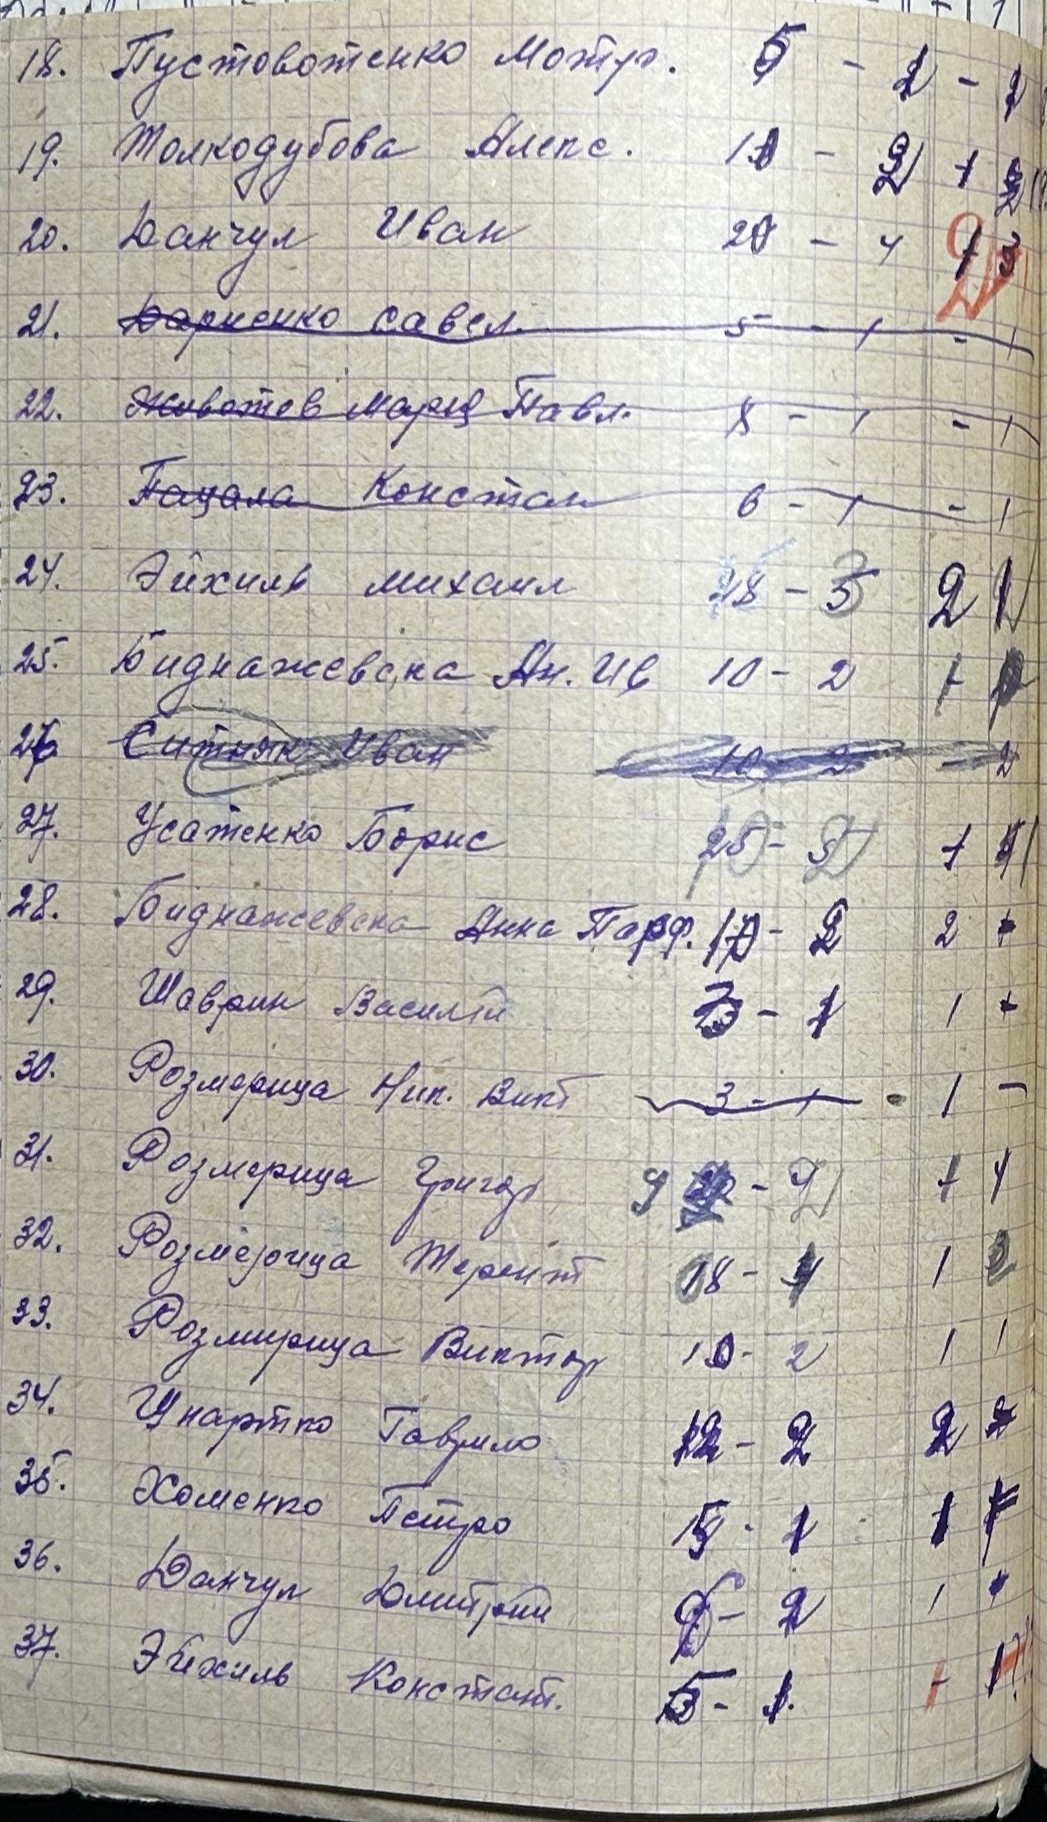 18. Пустовотенко Мотр. 5 - 1 - 1
19. Толкодубова Алекс. 11 - 2 1
20. Данчул Иван 20 - 4 1 3
21. Дариенко Савел. 5 - 1 - 1
22. Животев Мария Павл. 8 - 1 - 1
23. Пацала Констан 6 - 1 - 1
24. Эйхиль Михаил 18 - 3 2 1
25. Биднажевска Ан. Ив 10 - 2 1
26. Ситняк Иван 10 2 - 2
27. Усатенко Борис 25 - 1
28. Биднажевска Анна Парф. 10 - 2 2
29. Шаврин Василий - 1 1
30. Розмерица Ник. Викт 3 - 1 - 1 -
31. Розмерица Григор 9 - 2 1 1
32. Розмерица Терент 18 - 1
33. Розмирица Виктор 10 - 2 1 1
34. Гаврило 12 - 2 2 2
35. Хоменко Петро 15 - 1 1
36. Данчул Дмитрий - 2 1
37. Эйхиль Констант. - 1. 1